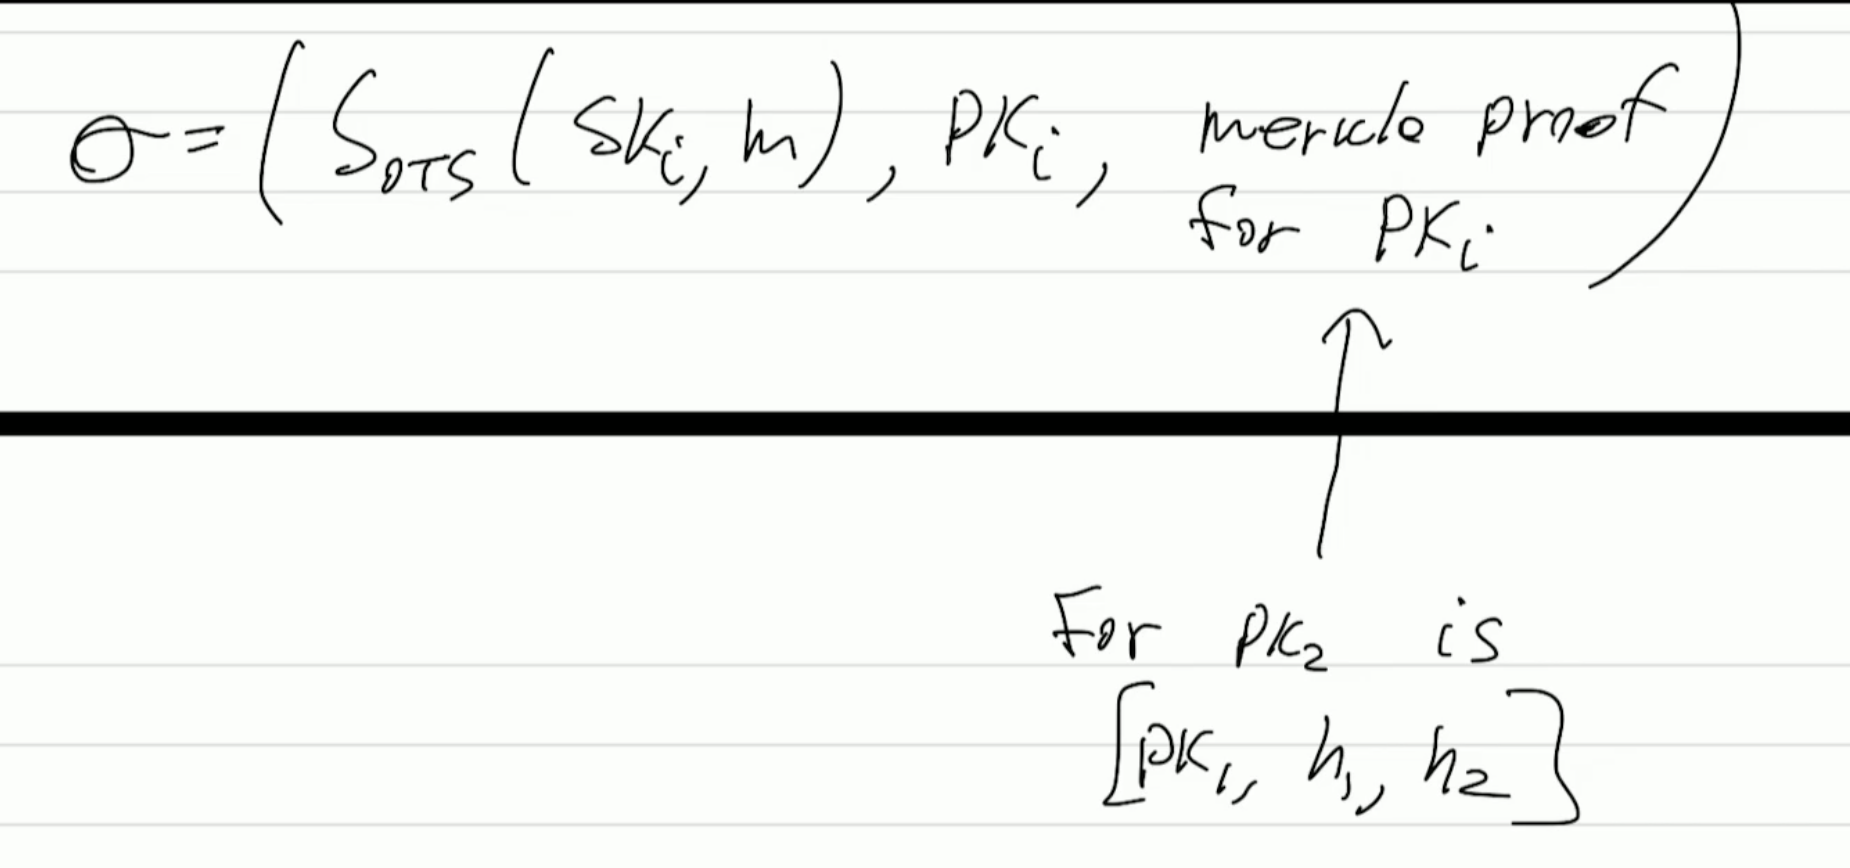 σ = ( S_OTS ( SK_i, m ), PK_i, mercle proof
for PK_i )
For PK_2 is
[PK_1, h_1, h_2]